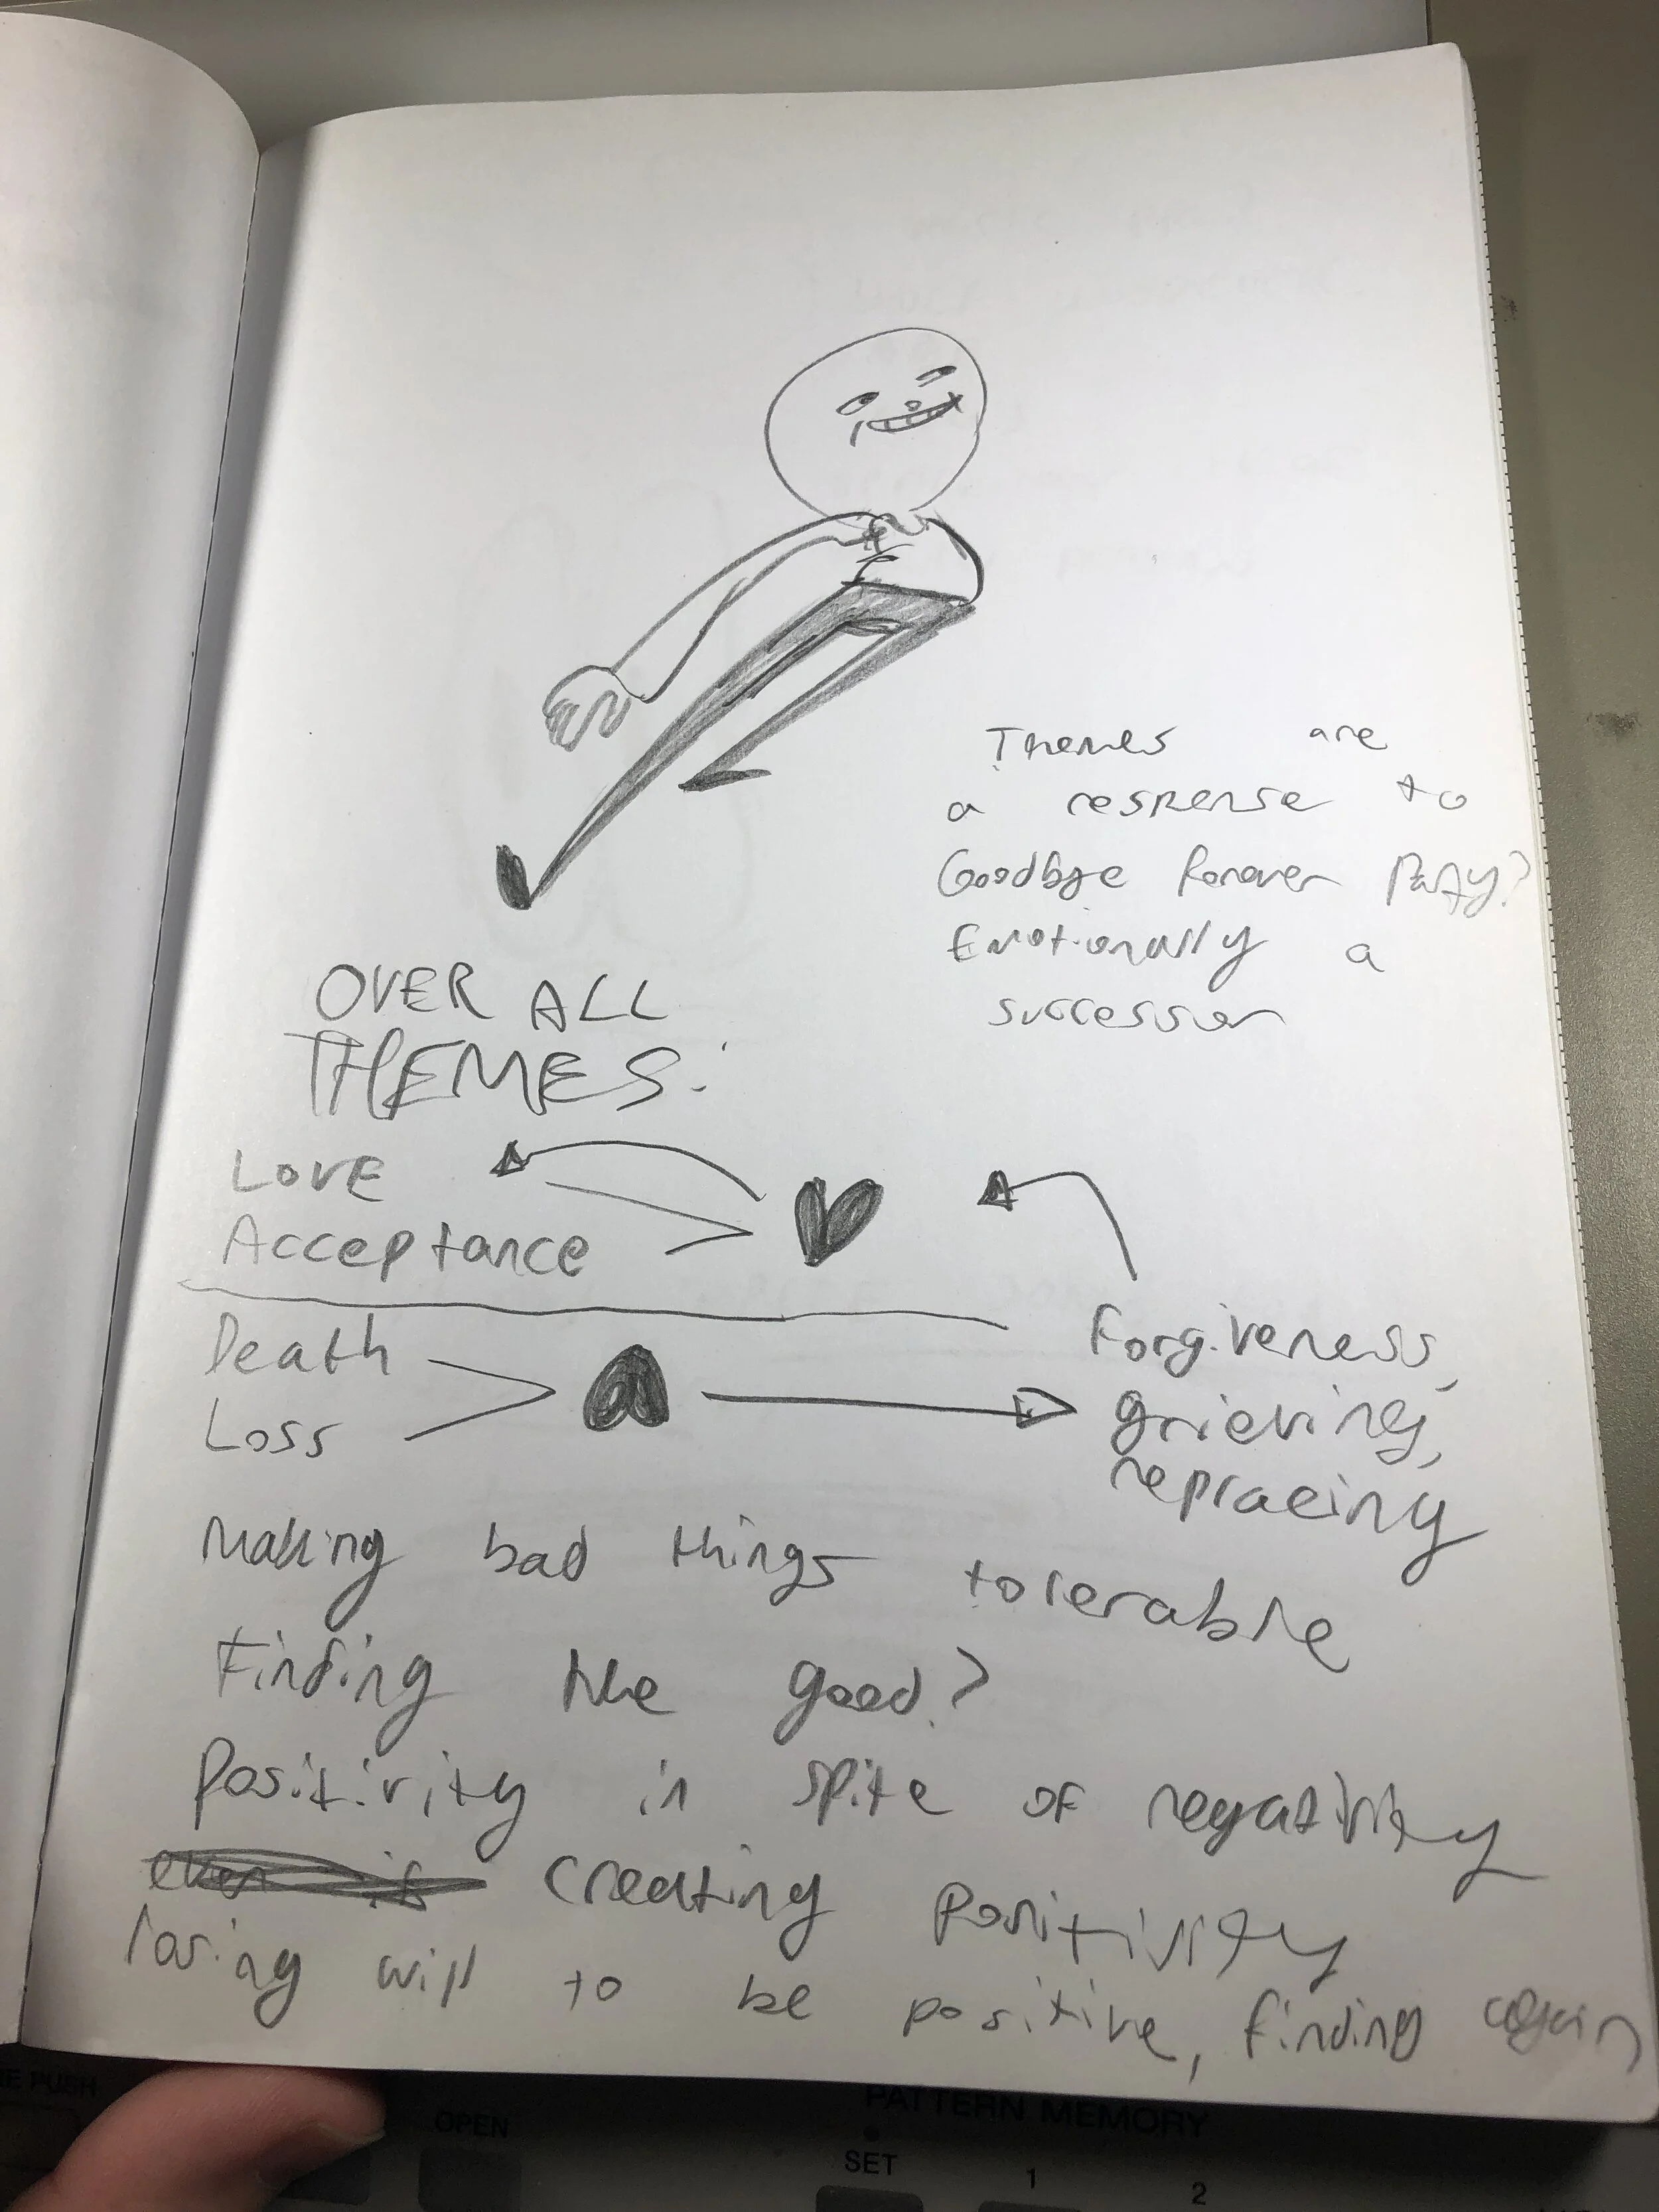 Themes are
a response to
Goodbye forever Party?
Emotionally a
successor
OVER ALL
THEMES:
LOVE
Acceptance
Death
Loss
Forgiveness,
grieving,
replacing
Making bad things tolerable
Finding the good?
Positivity in spite of negativity
even if creating positivity
losing will to be positive, finding again
E PUSH
OPEN
PATTERN MEMORY
SET
1
2